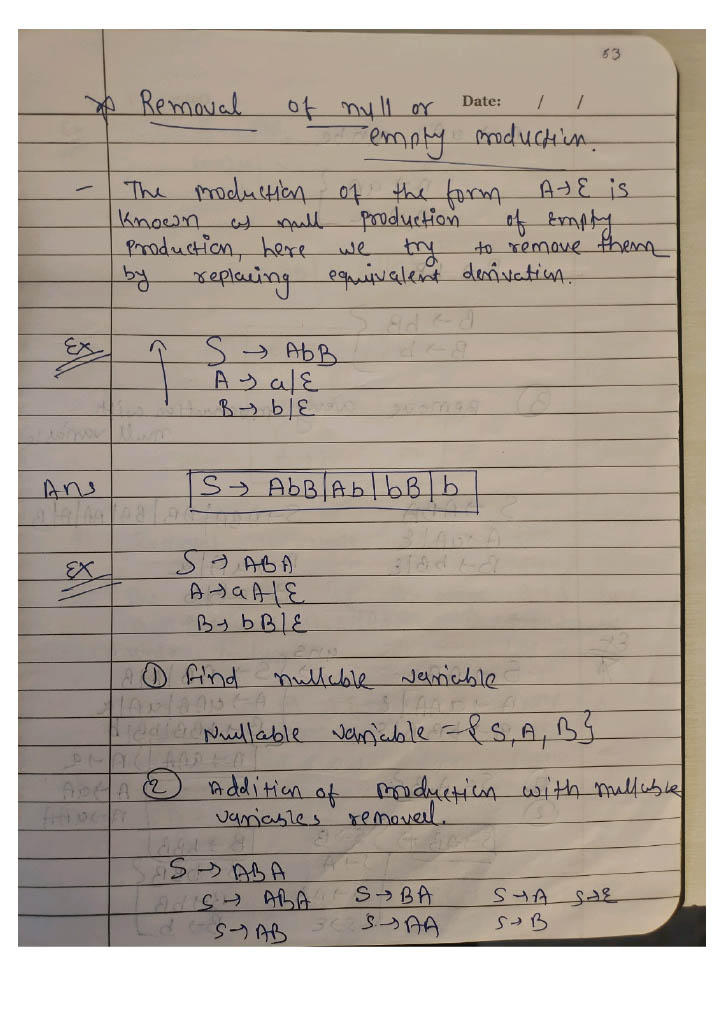 53
Removal of null or Date: / /
empty production.
- The production of the form A→ε is
known as null production of Empty
production, here we try to remove them
by replacing equivalent derivation.
Ex S → AbB
A → a|ε
B → b|ε
Ans S → AbB|Ab|bB|b
Ex S → ABA
A → aA|ε
B → bB|ε
① find nullable variable
Nullable variable = {S, A, B}
② Addition of production with nullable
variables removed.
S → ABA
S → ABA S → BA S → A S → ε
S → AB S → AA S → B